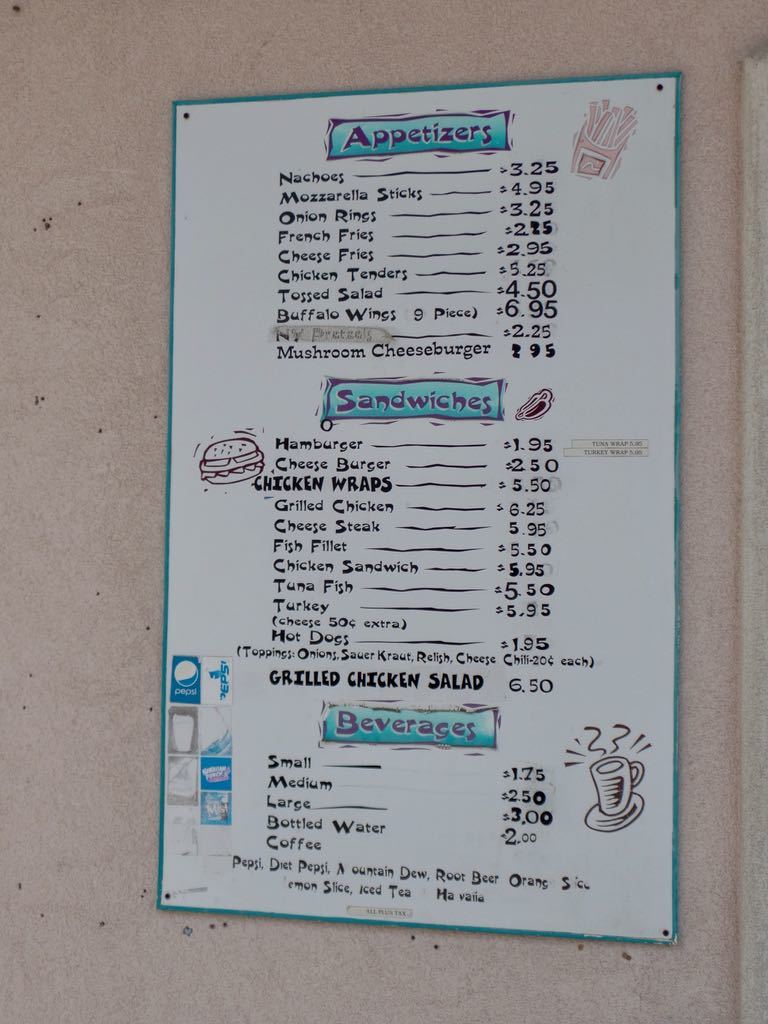 Appetizers
Nachoes $3.25
Mozzarella Sticks $4.95
Onion Rings $3.25
French Fries
Cheese Fries $2.95
Chicken Tenders $5.25
Tossed Salad $4.50
Buffalo Wings (9 Piece) $6.95
NY Pretzels $2.25
Mushroom Cheeseburger
Sandwiches
Hamburger $1.95
TUNA WRAP 5.95
Cheese Burger $2.50
TURKEY WRAP 5.95
CHICKEN WRAPS $5.50
Grilled Chicken $6.25
Cheese Steak 5.95
Fish Fillet $5.50
Chicken Sandwich $5.95
Tuna Fish $5.50
Turkey $5.95
(cheese 50¢ extra)
Hot Dogs $1.95
(Toppings: Onions, Sauer Kraut, Relish, Cheese Chili-20¢ each)
GRILLED CHICKEN SALAD 6.50
pepsi
PEPSI
Beverages
Small $1.75
Medium $2.50
Large $3.00
Bottled Water $2.00
Coffee
Pepsi, Diet Pepsi, M ountain Dew, Root Beer Orang S ic
emon Slice, Iced Tea Ha vaiia
ALL PLUS TAX